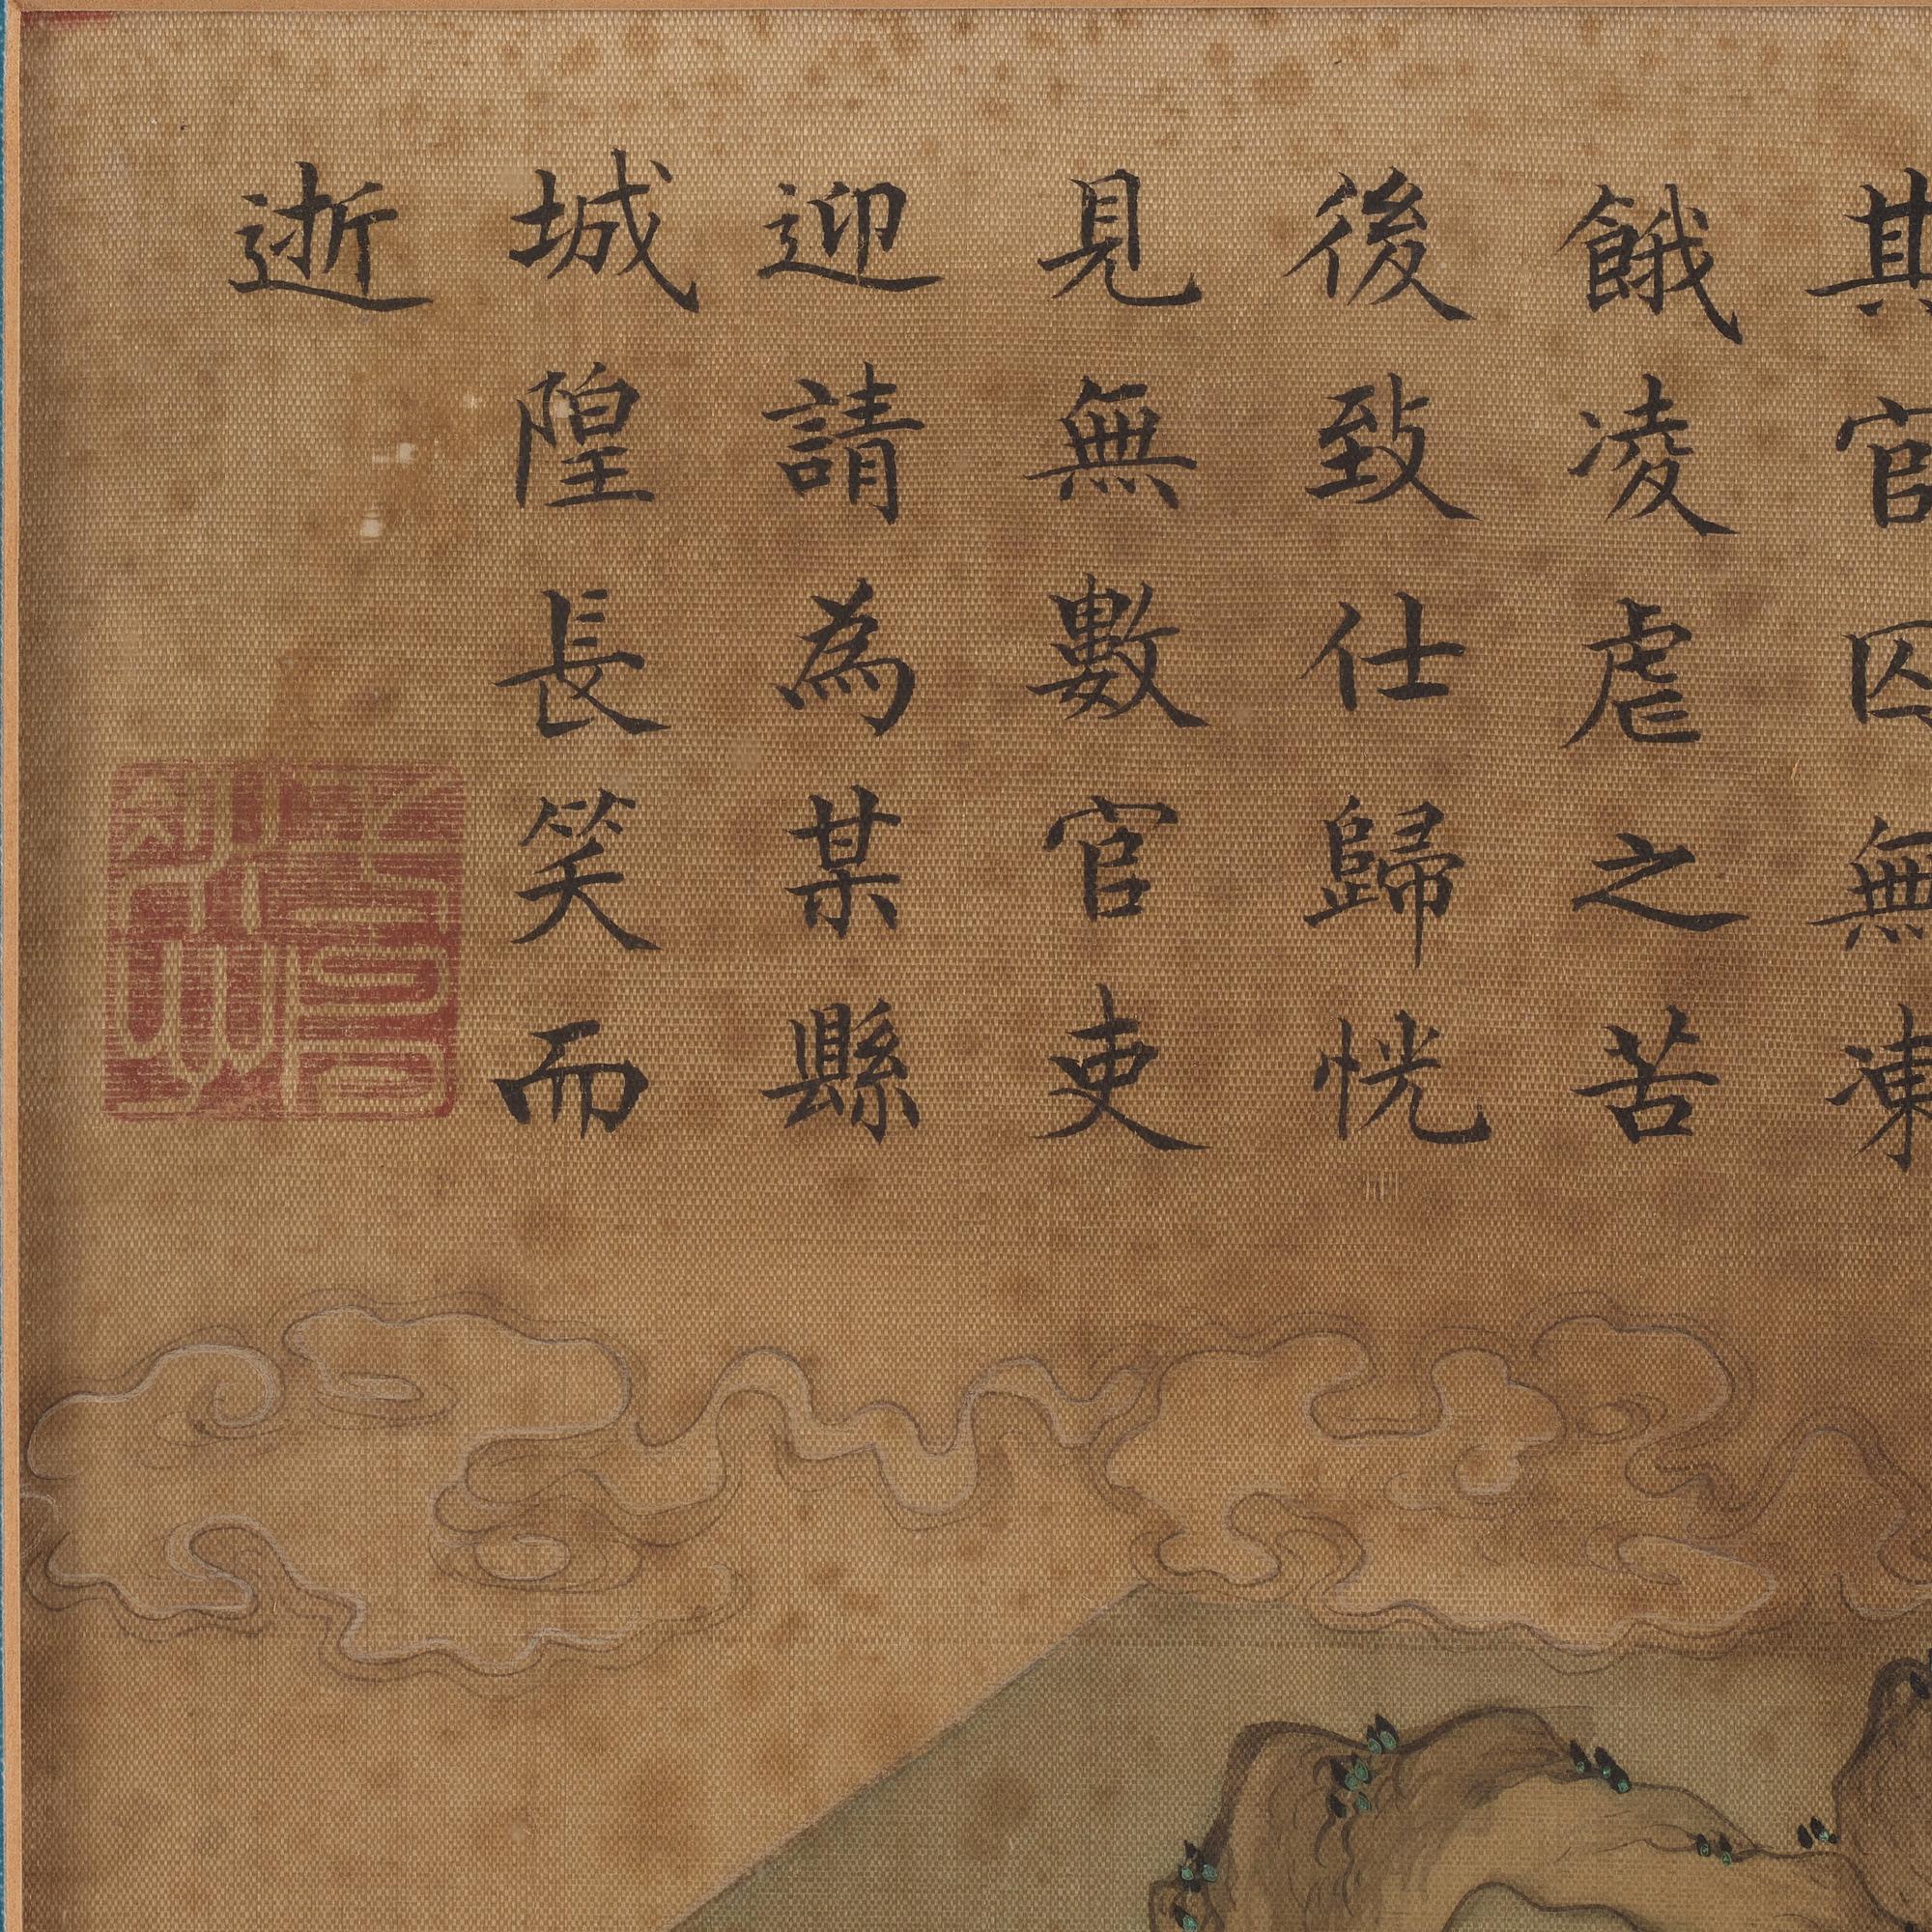 其官囚無凍
餓凌虐之苦
後致仕歸恍
見無數官吏
迎請為某縣
城隍長笑而
逝